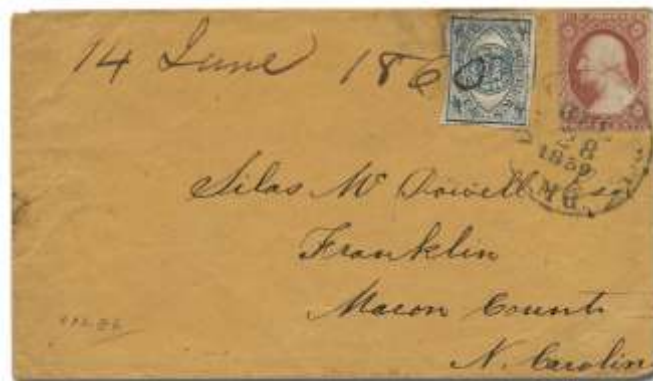 14 June 1860
8
1859
MD.
Silas McDowell Esq
Franklin
Macon County
N. Carolin